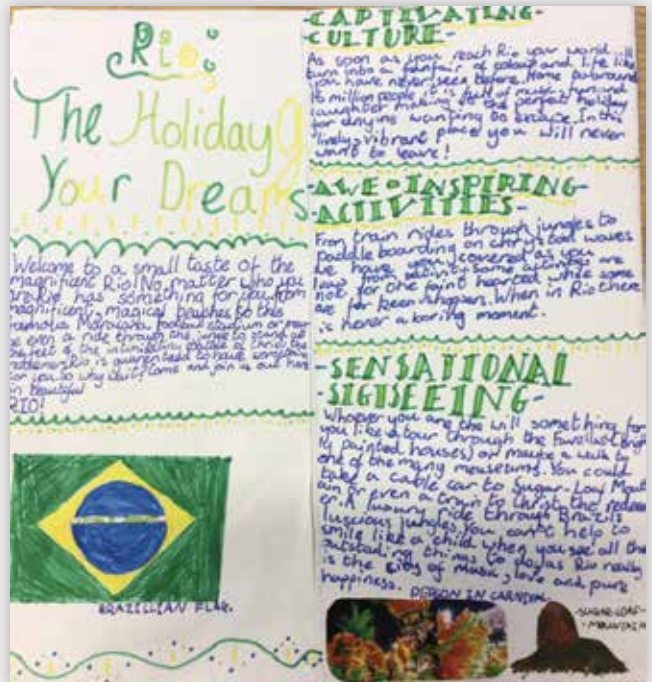 Rio,
The Holiday
Your Dreams
Welcome to a small taste of the
magnificent Rio! No matter who you
are Rio has something for you, from
magnificent, magical beaches to the
famous Maracana football stadium or
be even a ride through the
the feet of the
Rio is to have
for you. So why wait? Come and join us out here
in beautiful
RIO!
BRAZILLIAN FLAG.
-CAPTIVATING-
CULTURE-
As soon as your reach Rio your world will
turn into a of colour and life like
you have never seen before. Home to around
16 million people it is full of music, fun and
laughter making it the perfect holiday
for anyins wanting to escape. In this
lively, vibrant place you will never
want to leave!
-AWE-INSPIRING-
-ACTIVITIES-
From train rides through jungles to
paddle boarding on waves
we have you covered as you
leap from Some activities are
not for the faint hearted while some
are for When in Rio there
is never a boring moment.
-SENSATIONAL
-SIGSEEING-
Whoever you are the will something for
you like a tour through the
painted houses) or maybe a walk to
one of the many meuseums. You could
take a cable car to Sugar-Loaf Mount
or even a train to Christ the redeem
er. A luxury ride through Brazils
luscious jungles. You can't help to
smile like a child when you see all the
outstading things to do, as Rio really
is the city of music, love and pure
happiness.
PERSON IN CARNIVAL
-SUGAR-LOAF-
-MOUNTAIN